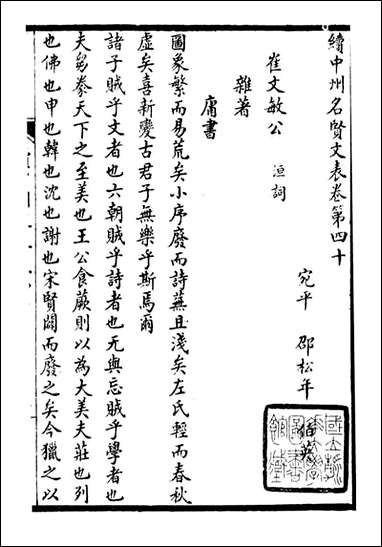 續中州名賢文表卷第四十
宛平 邵松年
崔文敏公 洹詞
雜著
庸書
圖象繁而易荒矣小序廢而詩蕪且淺矣左氏輕而春秋
虛矣喜新變古君子無樂乎斯焉爾
諸子賊乎文者也六朝賊乎詩者也无與忘賊乎學者也
夫芻豢天下之至美也王公食蕨則以為大美夫莊也列
也佛也申也韓也沈也謝也宋賢闢而廢之矣今獵之以